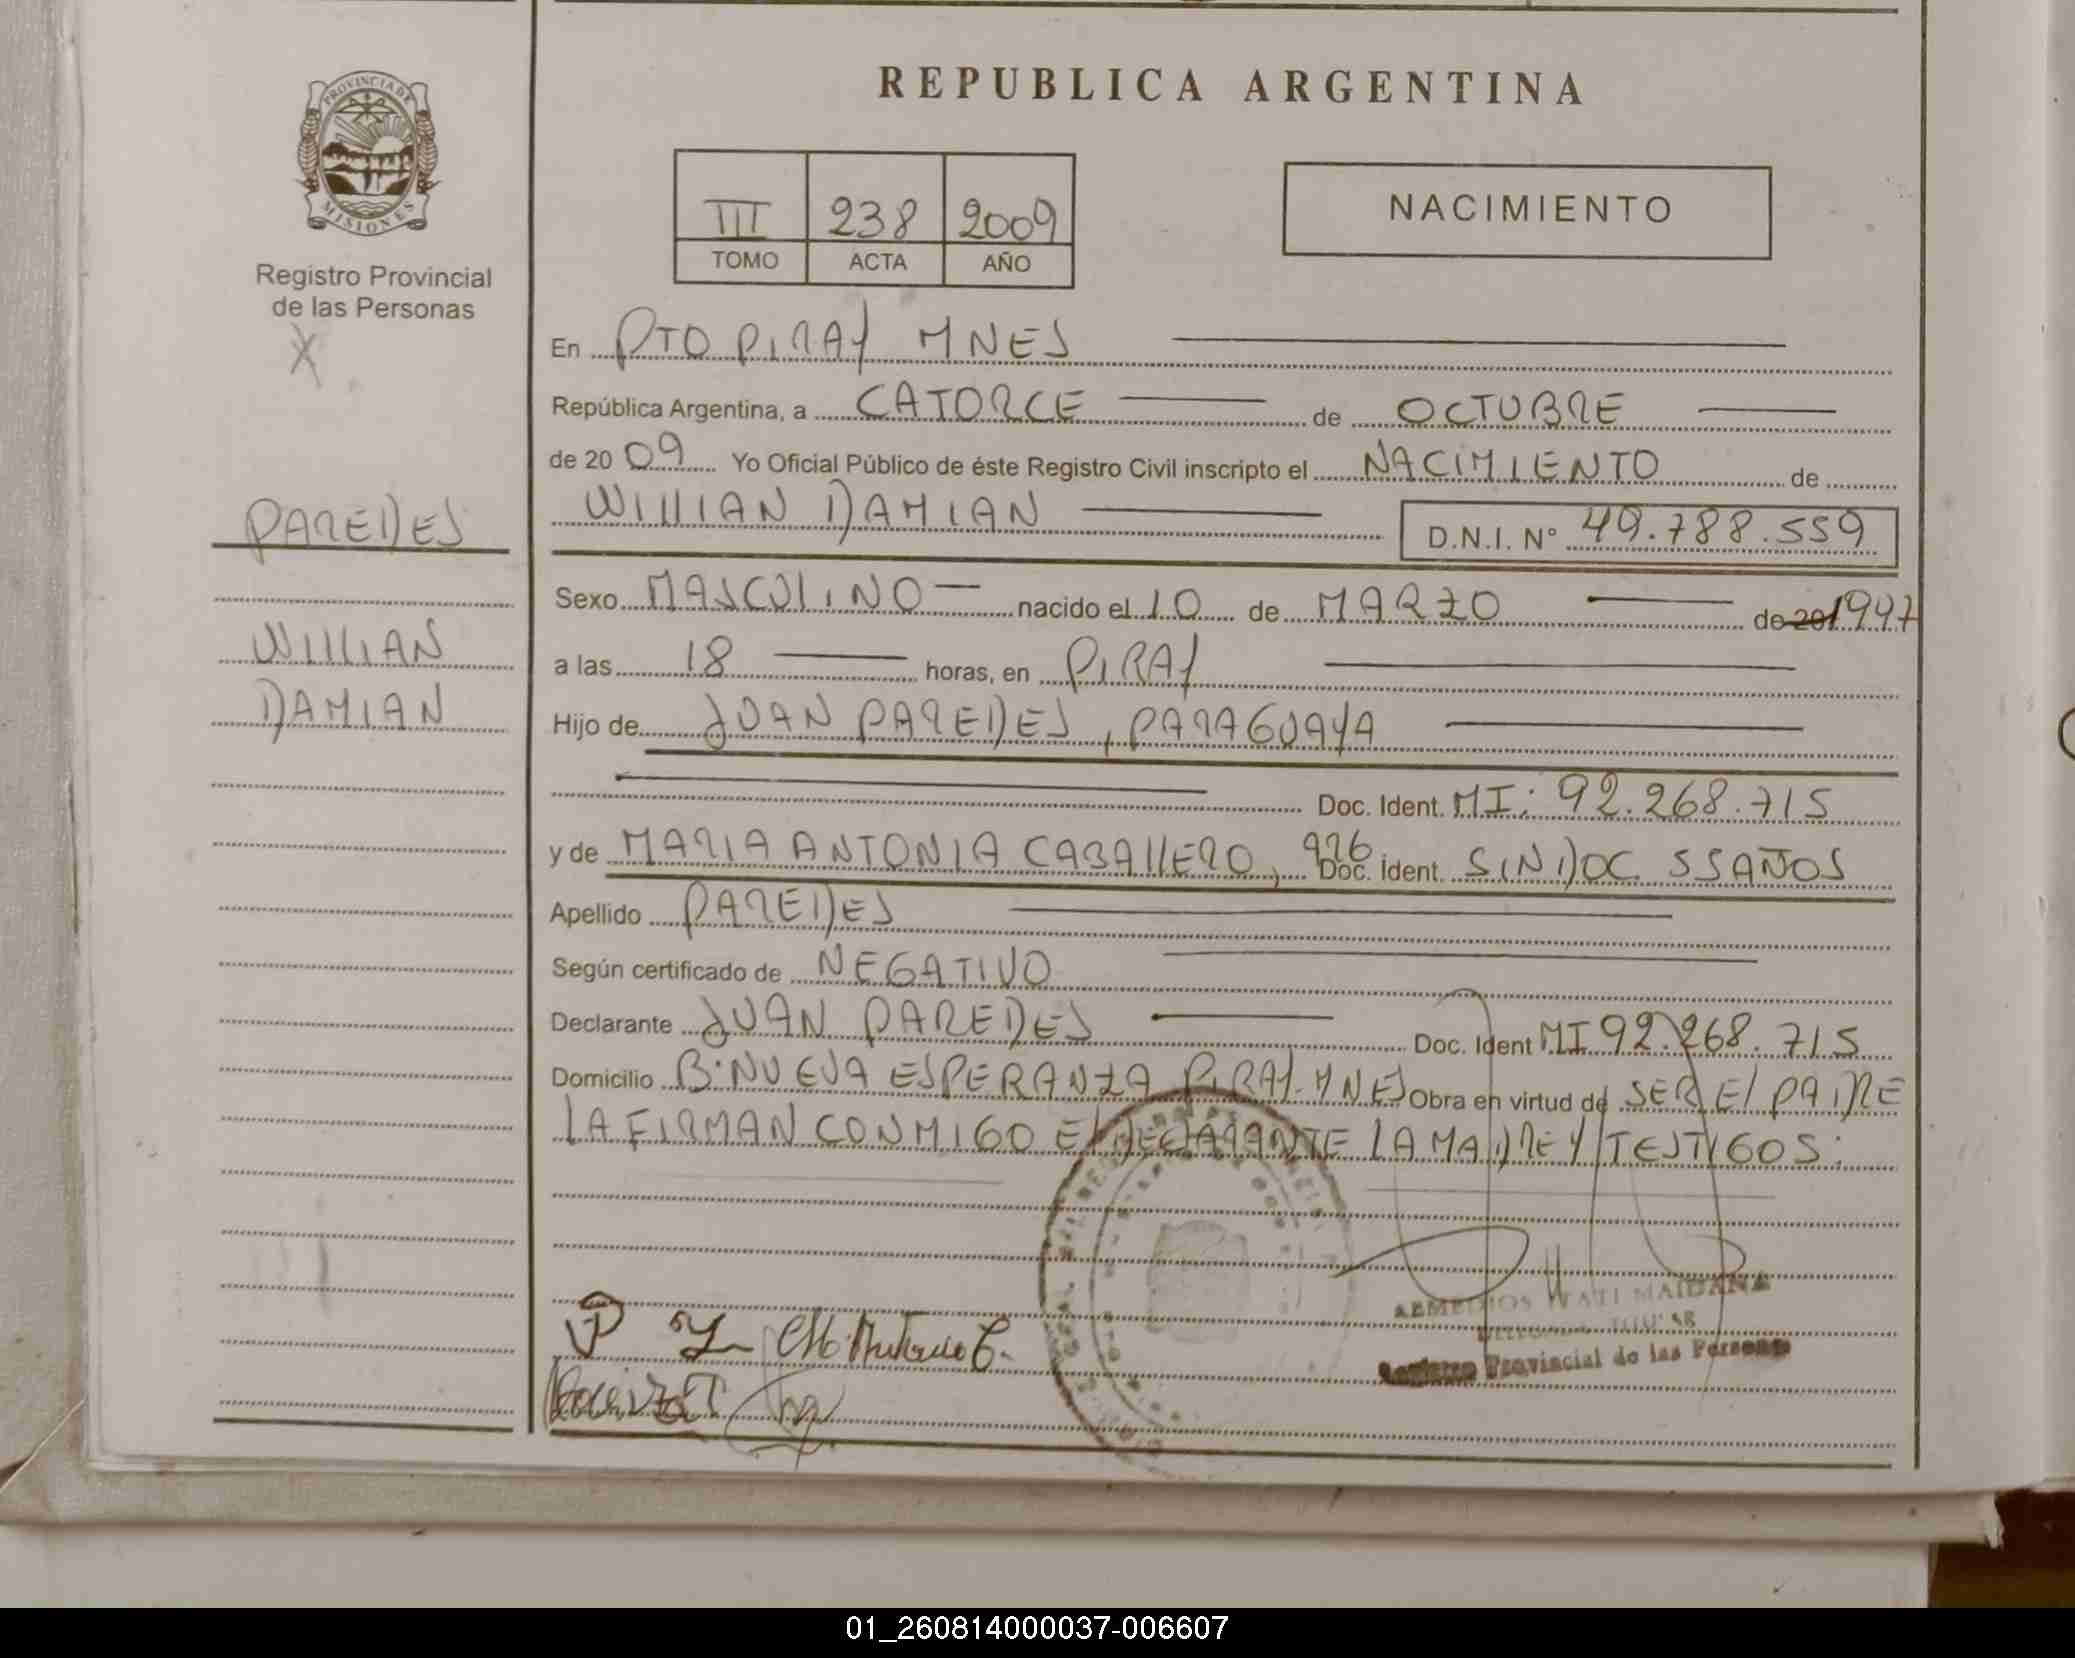 REPUBLICA ARGENTINA
PROVINCIA DE
MISIONES
Registro Provincial
de las Personas
X
III 238 2009
TOMO ACTA AÑO
NACIMIENTO
En PTO PIRAY MNES
República Argentina, a CATORCE de OCTUBRE
de 2009 Yo Oficial Público de éste Registro Civil inscripto el NACIMIENTO de
PAREDES
WILLIAN DAMIAN D.N.I. N° 49.788.559
Sexo MASCULINO nacido el 10 de MARZO de 20 1997
WILLIAN
a las 18 horas, en PIRAY
DAMIAN
Hijo de JUAN PAREDES, PARAGUAYA
Doc. Ident. MI: 92.268.715
y de MARIA ANTONIA CABALLERO, Doc. Ident. SIN DOC. 55 AÑOS
Apellido PAREDES
Según certificado de NEGATIVO
Declarante JUAN PAREDES Doc. Ident MI 92.268.715
Domicilio B: NUEVA ESPERANZA PIRAY-MNES Obra en virtud de SER EL PADRE
LA FIRMAN CONMIGO EL DECLARANTE LA MADRE Y TESTIGOS:
ITATI MAIDANA
Registro Provincial de las Personas
01_260814000037-006607